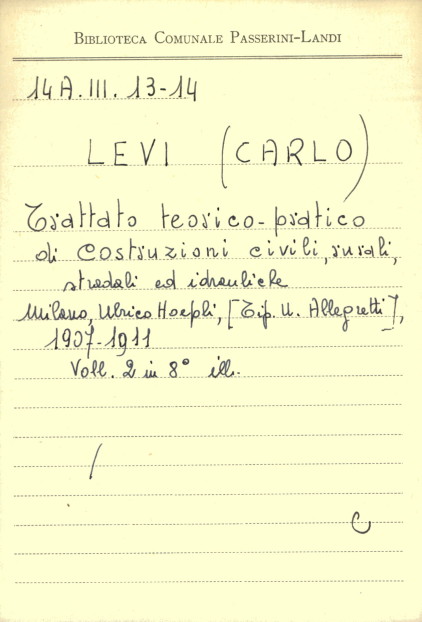 BIBLIOTECA COMUNALE PASSERINI-LANDI
14 A. III. 13-14
LEVI (CARLO)
Trattato teorico-pratico
di costruzioni civili, rurali,
stradali ed idrauliche
Milano, Ulrico Hoepli, [Tip. U. Allegretti],
1907-1911
Voll. 2 in 8° ill.
/
C